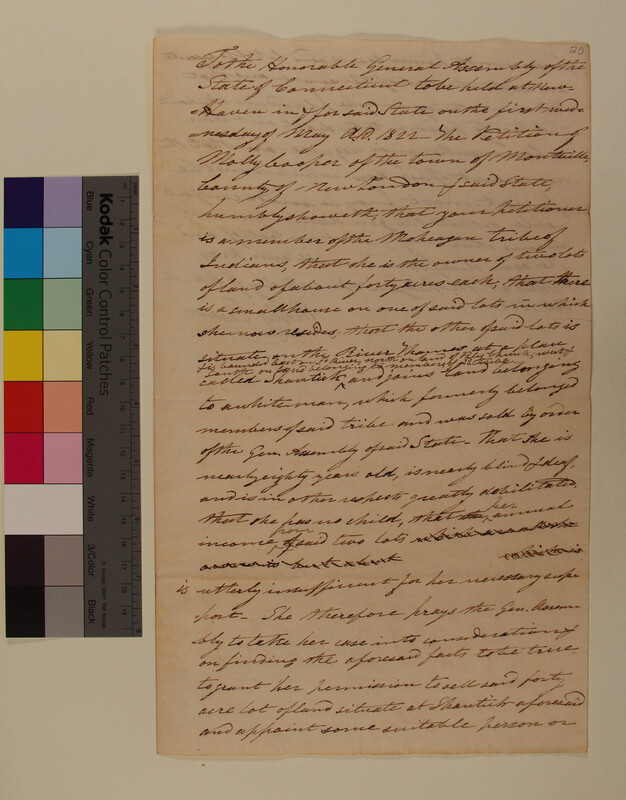 20
To the Honorable General Assembly of the
State of Connecticut to be held at New-
-Haven in & for said State on the first wed-
-nesday of May A.D. 1822 - The Petition of
Molly Cooper of the town of Montville,
County of New London & said State,
humbly sheweth, that your Petitioner
is a member of the Moheagan tribe of
Indians, that she is the owner of two lots
of land of about forty acres each, that there
is a small house on one of said lots in which
she now resides, that the other of said lots is
situate on the River Thames, at a place
bounded east on river, north on land of
south on land belonging to members of tribe
called Shantick, and joins land belonging
to a white man, which formerly belonged
members of said tribe and was sold by order
of the Gen. Assembly of said State - That she is
nearly eighty years old, is nearly blind & deaf,
and is in other respects greatly debilitated.
that she has no child, that the her annual
income from of said two lots
is utterly insufficient for her necessary sup-
-port - She therefore prays the Gen. Assem-
-bly to take her case into consideration &
on finding the aforesaid facts to be true
to grant her permission to sell said forty
acre lot of land situate at Shantick aforesaid
and appoint some suitable person or
Kodak Color Control Patches
Blue
Cyan
Green
Yellow
Red
Magenta
White
3/Color
Black